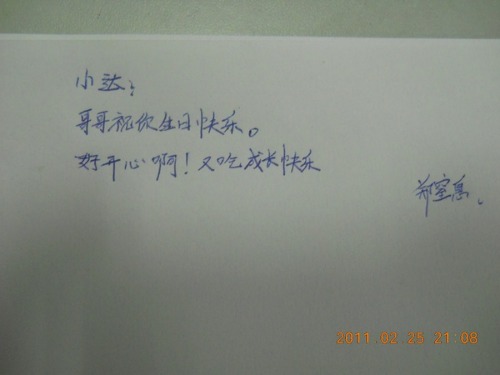 小达:
哥哥祝你生日快乐。
好开心啊!又吃成长快乐
郑窒息。
2011.02.25 21:08